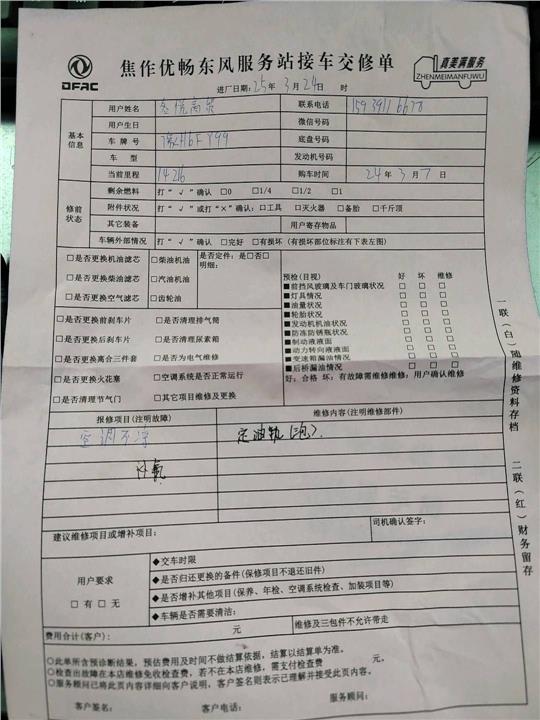 DFAC
焦作优畅东风服务站接车交修单
真美满服务
ZHENMEIMANFUWU
进厂日期: 25年 3月24日 时
基本信息
用户姓名 联系电话
用户生日 微信号码
车牌号 豫H6FY99 底盘号码
车型 发动机号码
当前里程 14216 购车时间 24年3月7日
修前状态
剩余燃料 打“√”确认 □0 □1/4 □1/2 □1
附件状况 打“√”或打“×”确认:□工具 □灭火器 □备胎 □千斤顶
其它装备 用户寄存物品
车辆外部情况 打“√”确认 □完好 □有损坏 (有损坏部位标注有下表左图)
□是否更换机油滤芯 □柴油机油
□是否更换柴油滤芯 □汽油机油
□是否更换空气滤芯 □齿轮油
是否定件:是□否□
明细:
□是否更换前刹车片 □是否清理排气筒
□是否更换后刹车片 □是否清理尿素箱
□是否更换离合三件套 □是否为电气维修
□是否更换火花塞 □空调系统是否正常运行
□是否清理节气门 □其它项目维修及更换
预检(目视) 好 坏 维修
■前挡风玻璃及车门玻璃状况 □ □ □
■灯具情况 □ □ □
■油量状况 □ □ □
■轮胎状况 □ □ □
■发动机机油状况 □ □ □
■防冻防锈瓶状况 □ □ □
■制动液液面 □ □ □
■动力转向液液面 □ □ □
■变速箱漏油情况 □ □ □
■后桥漏油情况 □ □ □
好:合格 坏:有故障需维修维修:用户确认维修
报修项目(注明故障) 维修内容(注明维修部件)
空调不凉 定油轨(三包).
建议维修项目或增补项目: 司机确认签字:
用户要求
□有 □无
◆交车时限
◆是否归还更换的备件(保修项目不退还旧件)
◆是否增补其他项目(保养、年检、空调系统检查、加装项目等)
◆车辆是否需要清洁:
费用合计(客户): 元 维修及三包件不允许带走
○此单所含预诊断结果,预估费用及时间不做结算依据,结算以结算单为准。
○检查出故障在本店维修免收检查费,若不在本店维修,需支付检查费 元。
○服务顾问已将此页内容详细向客户说明,客户签名则表示已理解并接受此页内容。
客户签名: 客户电话: 服务顾问:
一联(白)随维修资料存档
二联(红)财务留存